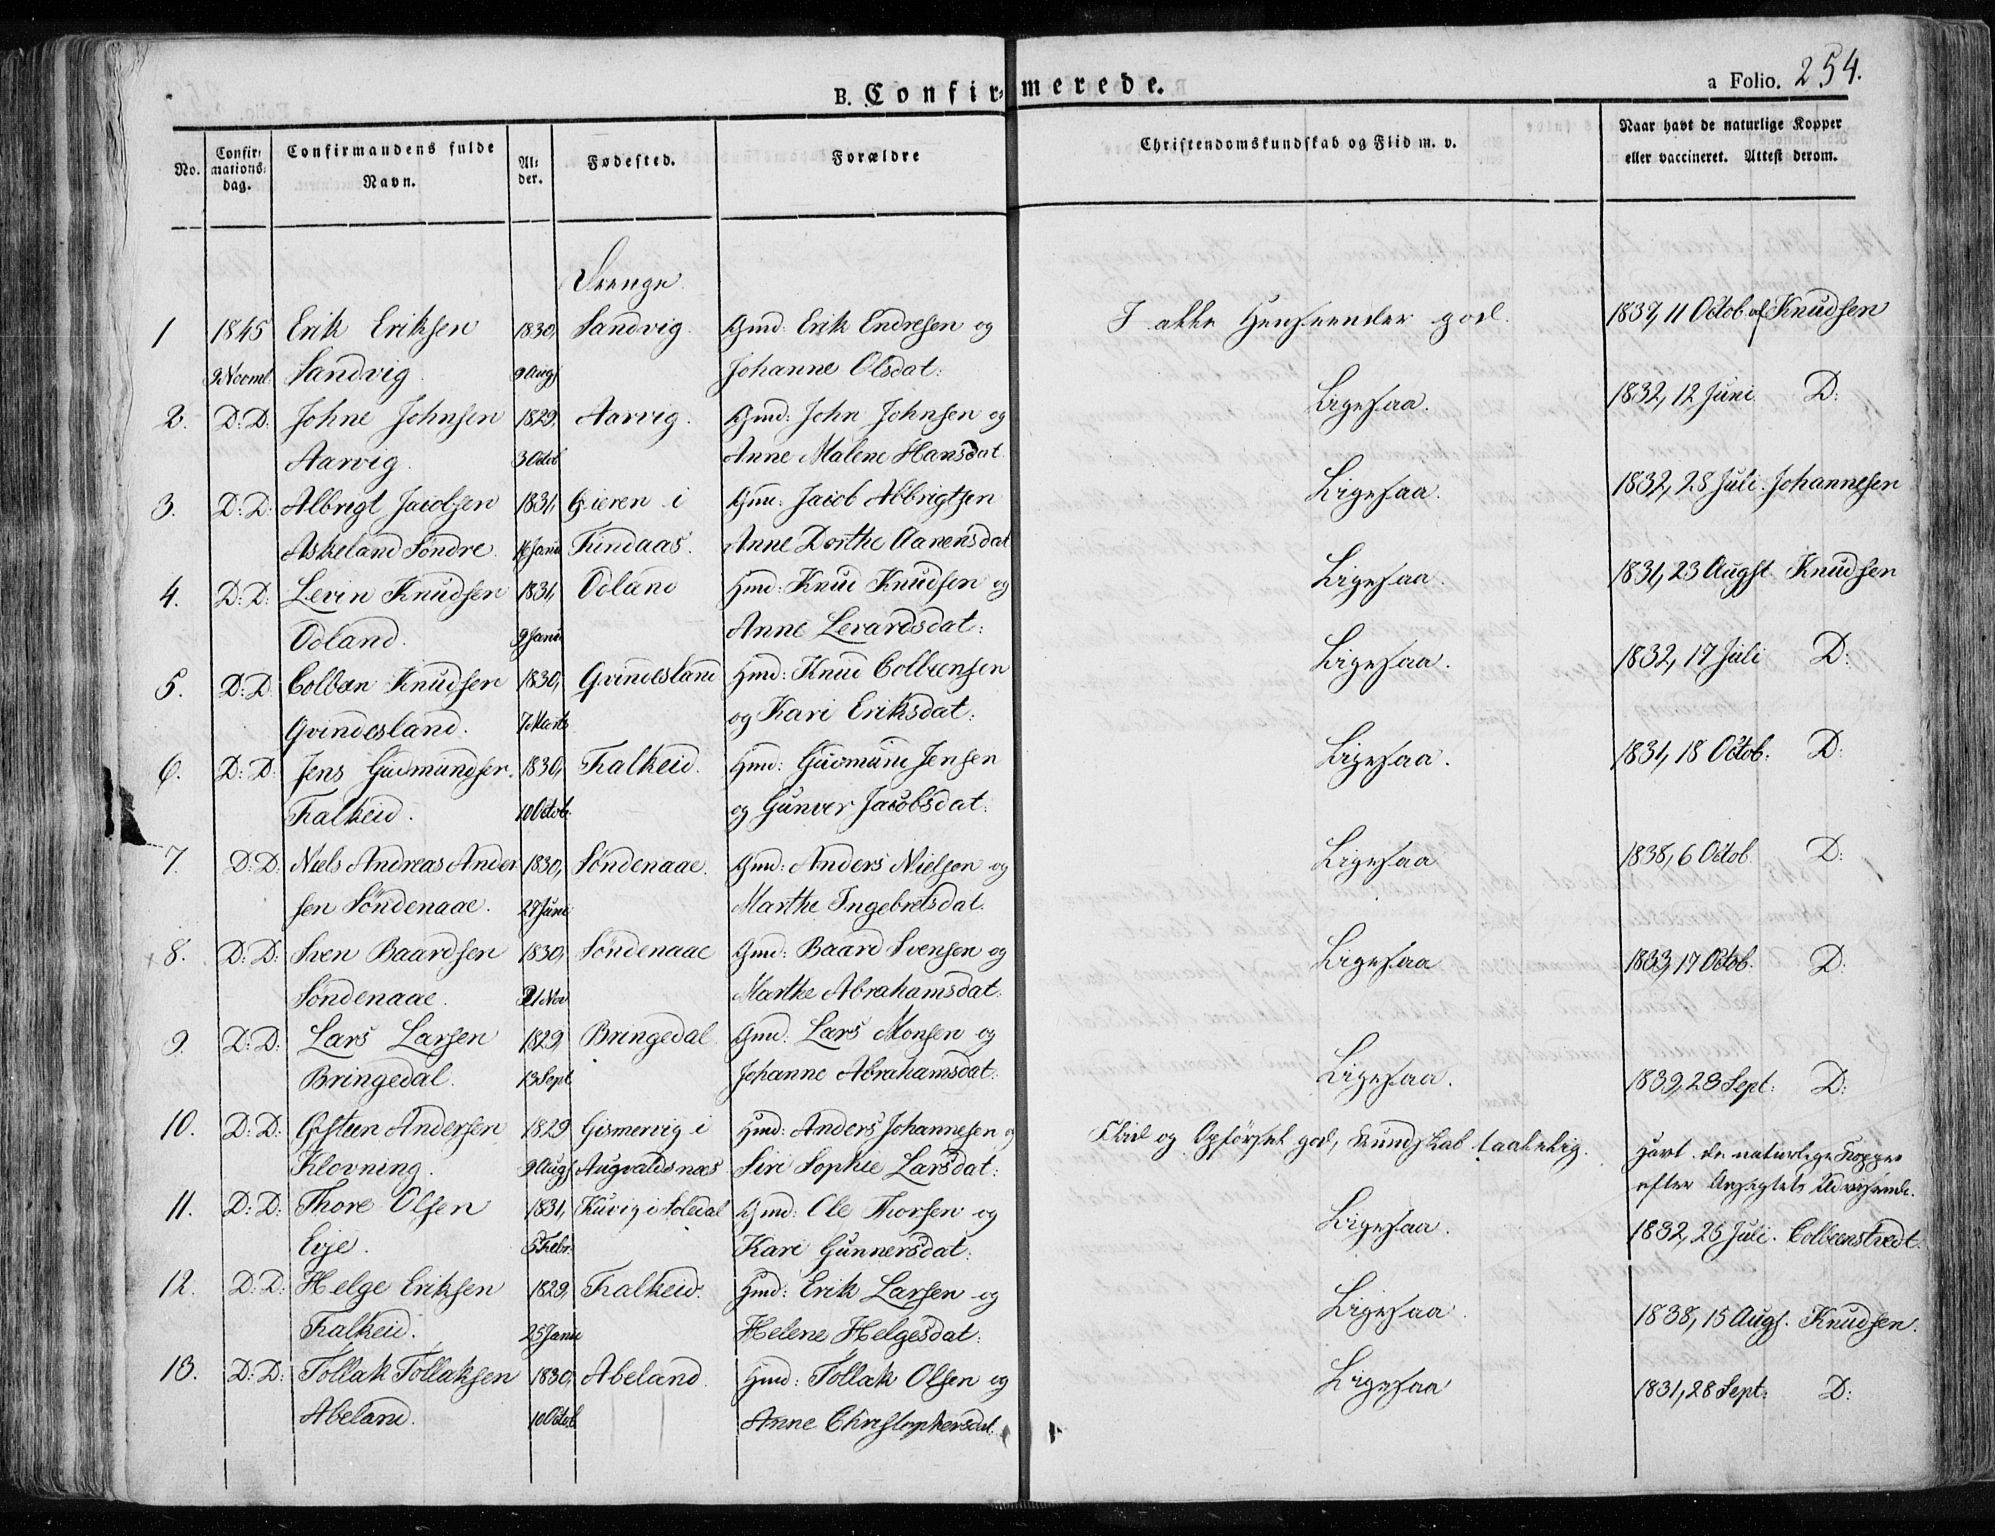 B. Confirmerede.
a Folio. 254.
No. Confirmations dag. Confirmandens fulde Navn. Alder. Fødested. Forældre Christendomskundskab og Flid m. v. Naar havt de naturlige Kopper eller vaccineret. Attest derom.
Drenge.
1 1845 Erik Eriksen 1830, Sandvig. Gmd: Erik Endresen og I alle Henseender god. 1837, 11 Octob. af Knudsen
9 Novmb: Sandvig. 9 Augs Johanne Olsdat:
2. D: D: Johne Johnsen 1829, Aarvig. Gmd: John Johnsen og Ligesaa. 1832, 12 Juni. D:
Aarvig. 3 Octob Anne Malene Hansdat.
3. D: D: Albrigt Jacobsen 1831, Gieren i Gmd: Jacob Albrigtsen Ligesaa. 1832, 28 Juli. Johannesen
Askeland Søndre. 16 Janu Tundaas. Anne Dorthe Aanensdat
4. D: D: Levin Knudsen 1831, Odland Hmd: Knud Knudsen og Ligesaa. 1831, 23 Augst. Knudsen
Odland. 9 Janu Anne Levardsdat:
5. D: D. Colben Knudsen 1830, Gvindesland Hmd: Knud Colbensen Ligesaa. 1832, 17 Juli D:
Gvindesland. 7 Marts og Kari Eriksdat:
6. D: D: Jens Gudmundsen. 1830, Falkeid. Hmd: Gudmund Jensen Ligesaa. 1831, 18 Octob: D:
Falkeid. 10 Octob. og Gunver Jacobsdat:
7. D: D: Niels Andreas Ander 1830, Søndenaae. Gmd: Anders Nielsen og Ligesaa 1838, 6 Octob. D:
sen Søndenaae. 27 Juni Marthe Ingebretsdat.
8. D: D: Sven Baardsen 1830, Søndenaae Gmd: Baard Svensen og Ligesaa 1833, 17 Octob. D:
Søndenaae. 21 Nov Marthe Abrahamsdat:
9. D: D: Lars Larsen 1829, Bringedal Gmd: Lars Monsen og Ligesaa. 1832, 28 Sept: D:
Bringedal. 13 Sept Johanne Abrahamsdat:
10. D: D: Østen Andersen 1829 Gismervig i Hmd: Anders Johannesen og Flid og Opførsel god, Kundskab taalelig. Havt de naturlige Kopper
Klovning. 9 Augs Augvaldsnæs Siri Sophie Larsdat: efter Ansigtets Udvisende.
11. D: D: Thore Olsen 1831, Kuvig i Soledal Gmd: Ole Thorsen og Ligesaa. 1832, 26 Juli. Colbenstvedt.
Evje. 5 Febr. Kari Gunnersdat:
12. D: D: Helge Eriksen 1829, Falkeid. Hmd: Erik Larsen og Ligesaa. 1838, 15 Augs. Knudsen.
Falkeid. 25 Janu Helene Helgesdat:
13. D: D: Tollak Tollaksen 1830, Abeland. Hmd: Tollak Olsen og Ligesaa 1831, 28 Sept: D:
Abeland. 10 Octob Anne Christophersdat.